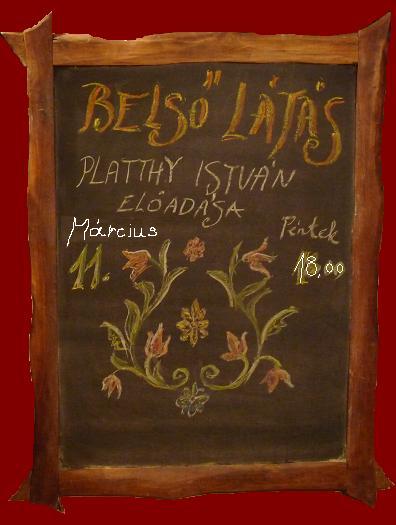 BELSŐ LÁTÁS
PLATTHY ISTVÁN
ELŐADÁSA
Március Péntek
11. 18,00